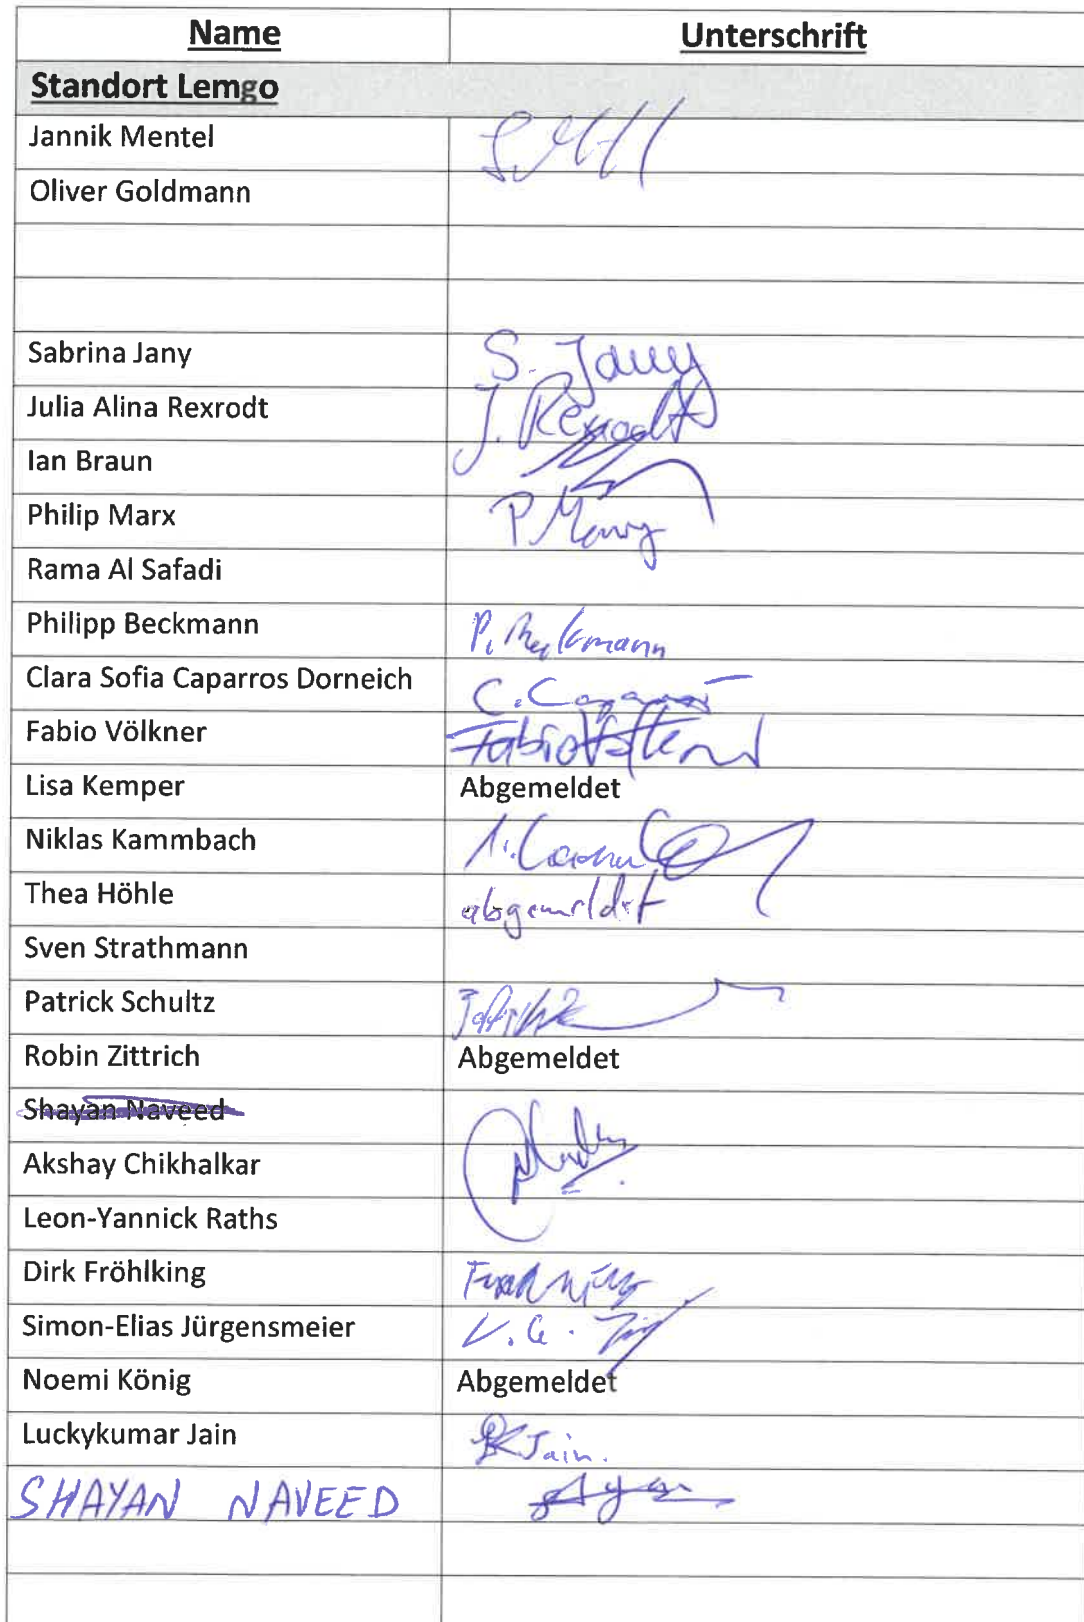 Name Unterschrift
Standort Lemgo
Jannik Mentel
Oliver Goldmann
Sabrina Jany S. Jany
Julia Alina Rexrodt J. Rexrodt
Ian Braun
Philip Marx P. Marx
Rama Al Safadi
Philipp Beckmann P. Beckmann
Clara Sofia Caparros Dorneich C. Caparros
Fabio Völkner Fabio Völkner
Lisa Kemper Abgemeldet
Niklas Kammbach
Thea Höhle abgemeldet
Sven Strathmann
Patrick Schultz
Robin Zittrich Abgemeldet
Shayan Naveed
Akshay Chikhalkar
Leon-Yannick Raths
Dirk Fröhlking
Simon-Elias Jürgensmeier
Noemi König Abgemeldet
Luckykumar Jain Jain.
SHAYAN NAVEED